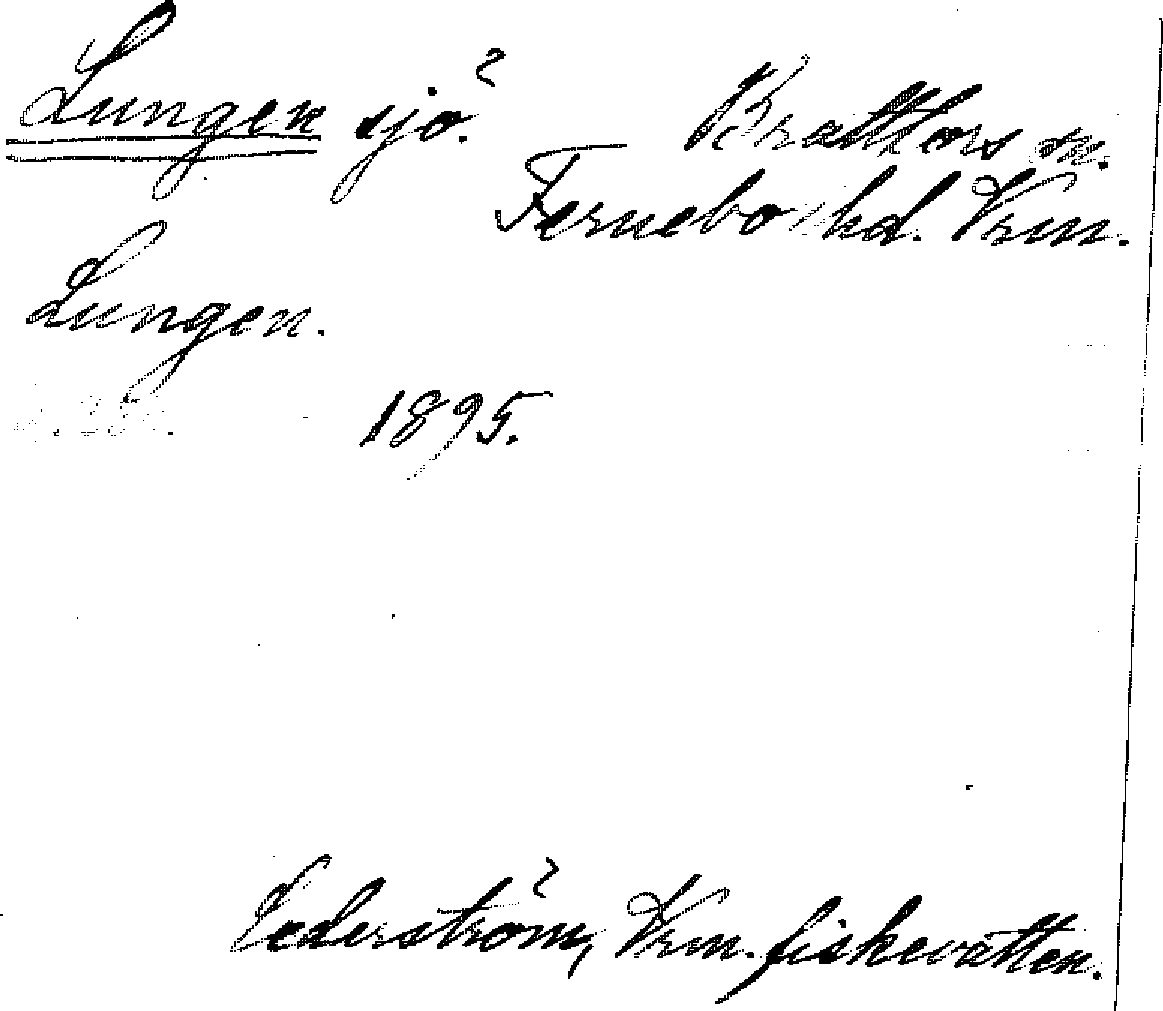 Lungen sjö. Brattfors sn.
Fernebo hd. Vrm.
Lungen.
1895.
Cederström, Vrm. fiskevatten.